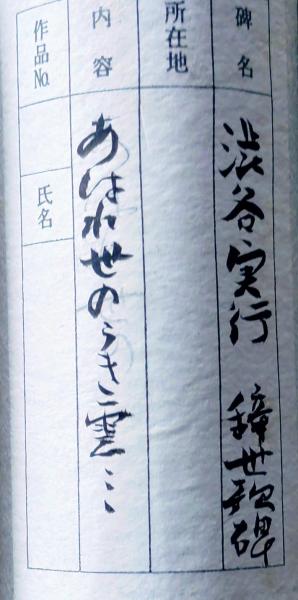 碑名
澁谷実行 辞世歌碑
所在地
内容
あはれ世のうき雲…
作品No.
氏名